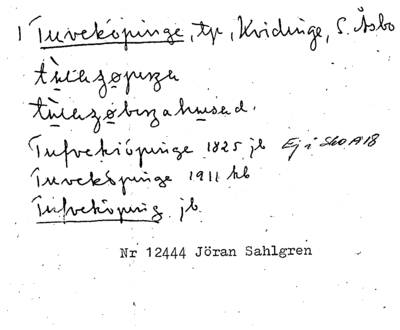 1 Tuveköpinge, tp, Kvidinge, S. Åsbo
Tufveköpinge 1825 jb Ej i SkO A 18
Tuveköpinge 1911 kb
Tufveköping jb
Nr 12444 Jöran Sahlgren